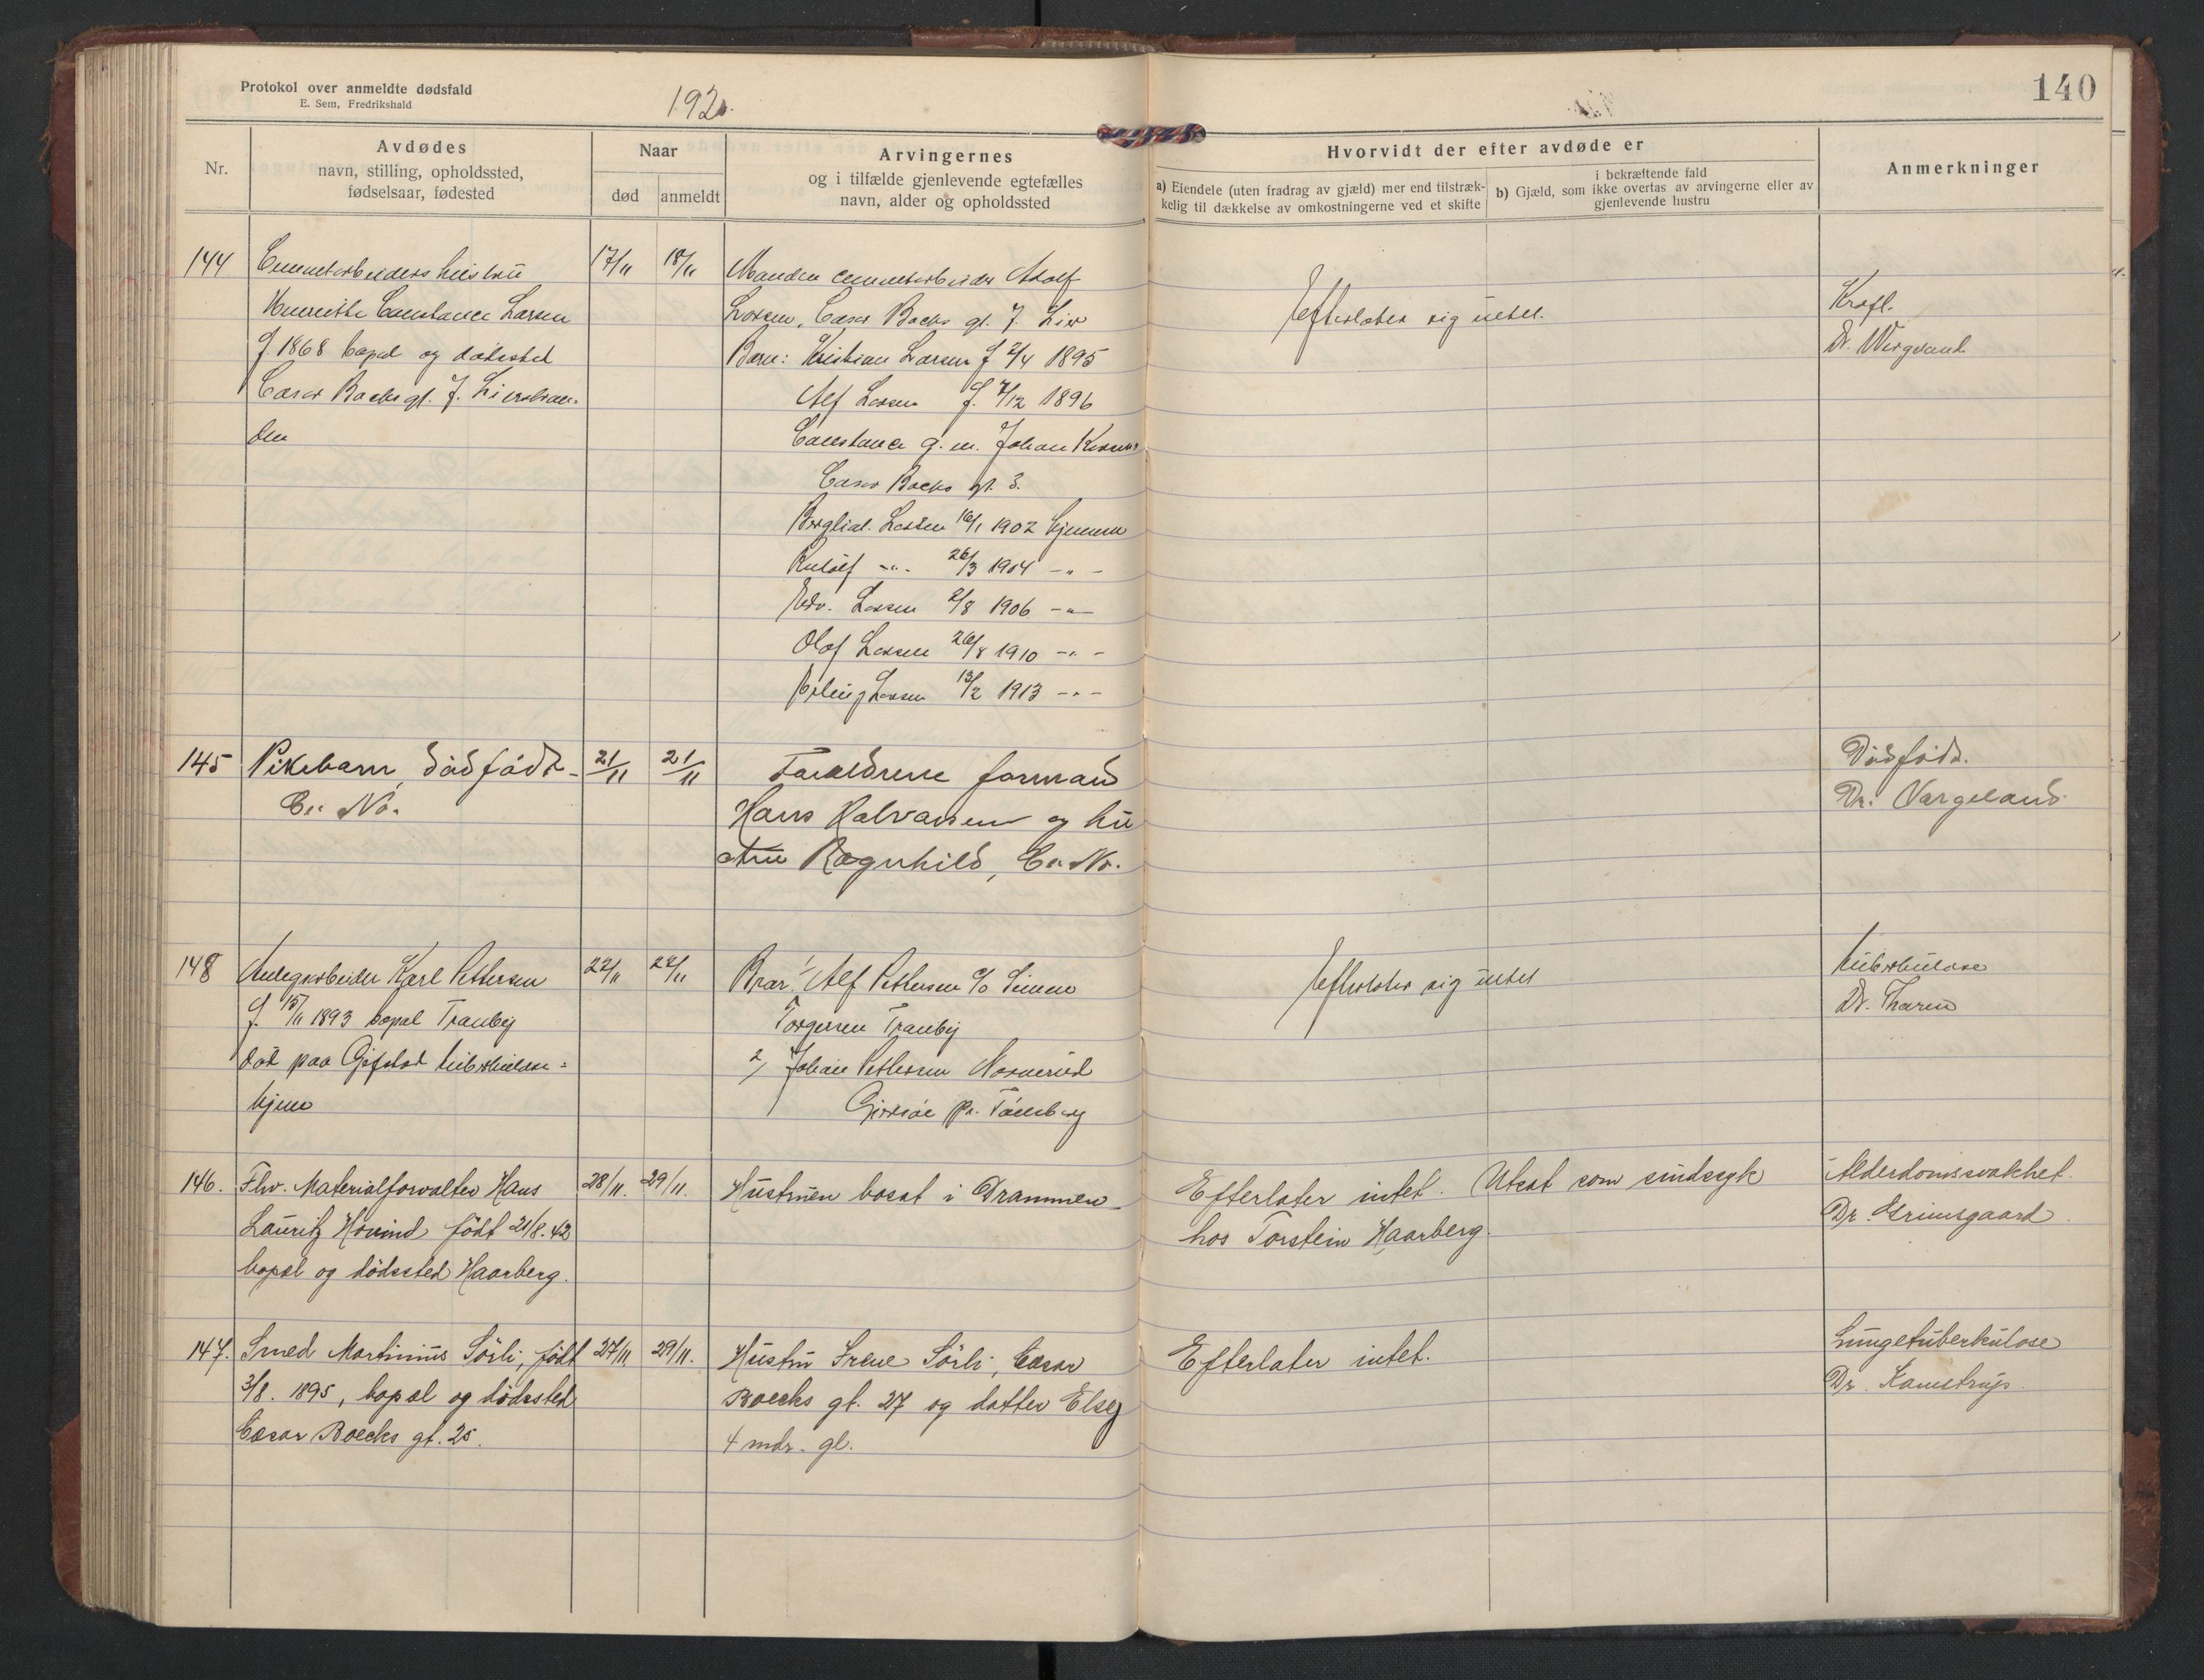 Protokol over anmeldte dødsfald
E. Sem, Fredrikshald
1920.
140
Nr.
Avdødes
navn, stilling, opholdssted,
fødselsaar, fødested
Naar
død
anmeldt
Arvingernes
og i tilfælde gjenlevende egtefælles
navn, alder og opholdssted
Hvorvidt der efter avdøde er
a) Eiendele (uten fradrag av gjæld) mer end tilstræk-
kelig til dækkelse av omkostningerne ved et skifte
i bekræftende fald
b) Gjæld, som ikke overtas av arvingerne eller av
gjenlevende hustru
Anmerkninger
144
Cementarbeiders hustru
Henriette Constance Larsen
f 1868 bopæl og dødssted
Cæsar Boeks gt. 7. Lierstran-
den
17/11
18/11
Manden cementarbeider Adolf
Larsen, Cæsar Boeks gt. 7. Lier
Barn: Kristian Larsen f 2/4 1895
Alf Larsen f. 4/12 1896
Constance g. m. Johan
Cæsar Boeks gt. 3.
Larsen 16/1 1902 hjemme
Rudolf -"- 26/3 1904 -"-
Edv. Larsen 2/8 1906 -"-
Olaf Larsen 26/8 1910 -"-
Erling Larsen 13/2 1913 -"-
Efterlater sig intet.
Kræft.
Dr.
145
Pikebarn, dødfødt -
Ca. No.
21/11
21/11
Forældrene formand
Hans Halvorsen og hu
stru Ragnhild, Ca. No.
Dødfødt.
Dr. Vergeland
148
Anlegsarbeider Karl Pettersen
f. 15/11 1893 bopæl Tranby
død paa Gjefstad tuberkulose-
hjem
22/11
22/11
Bror: 1/ Alf Pettersen c/o Simen
Torgersen Tranby
2/ Johan Pettersen
pr. Tønsberg
Efterlater sig intet
tuberkulose
Dr. Thoren
146.
Fhv. Materialforvalter Hans
Lauritz Hovind født 21/8. 42
bopæl og dødssted Haarberg.
28/11.
29/11.
Hustruen bosat i Drammen
Efterlater intet. Utsat som sindssyk
hos Torstein Haarberg.
Alderdomssvakhet.
Dr. Grimsgaard
147.
Smed Martinius Sörli, født
3/8. 1895, bopæl og dödssted
Cæsar Boecks gt. 25.
27/11
29/11.
Hustru Irene Sörli, Cæsar
Boecks gt. 27 og datter Elsy
4 mdr. gl.
Efterlater intet.
Lungetuberkulose
Dr. Kamstrup.